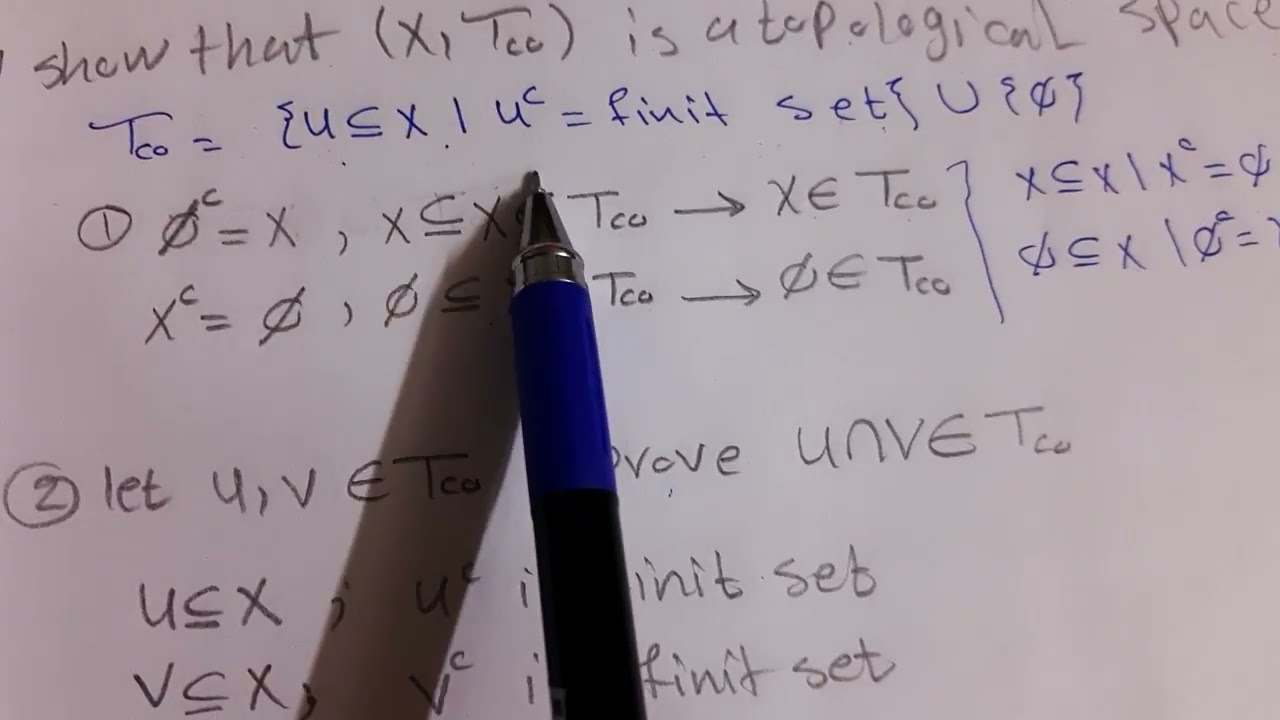 show that (X, Tco) is a topological space
Tco = {u ⊆ X | uᶜ = finit set} ∪ {ϕ}
① ϕᶜ = X , X ⊆ X ∈ Tco → X ∈ Tco } X ⊆ X | Xᶜ = ϕ
Xᶜ = ϕ , ϕ ⊆ Tco → ϕ ∈ Tco ϕ ⊆ X | ϕᶜ =
② let u, v ∈ Tco prove u ∩ v ∈ Tco
u ⊆ X ; uᶜ finit set
v ⊆ X , vᶜ finit set